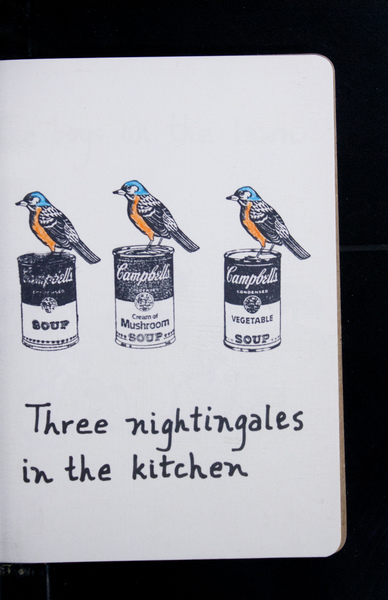 Campbell's
CONDENSED
SOUP
Campbell's
Cream of
Mushroom
SOUP
Campbell's
CONDENSED
VEGETABLE
SOUP
Three nightingales
in the kitchen